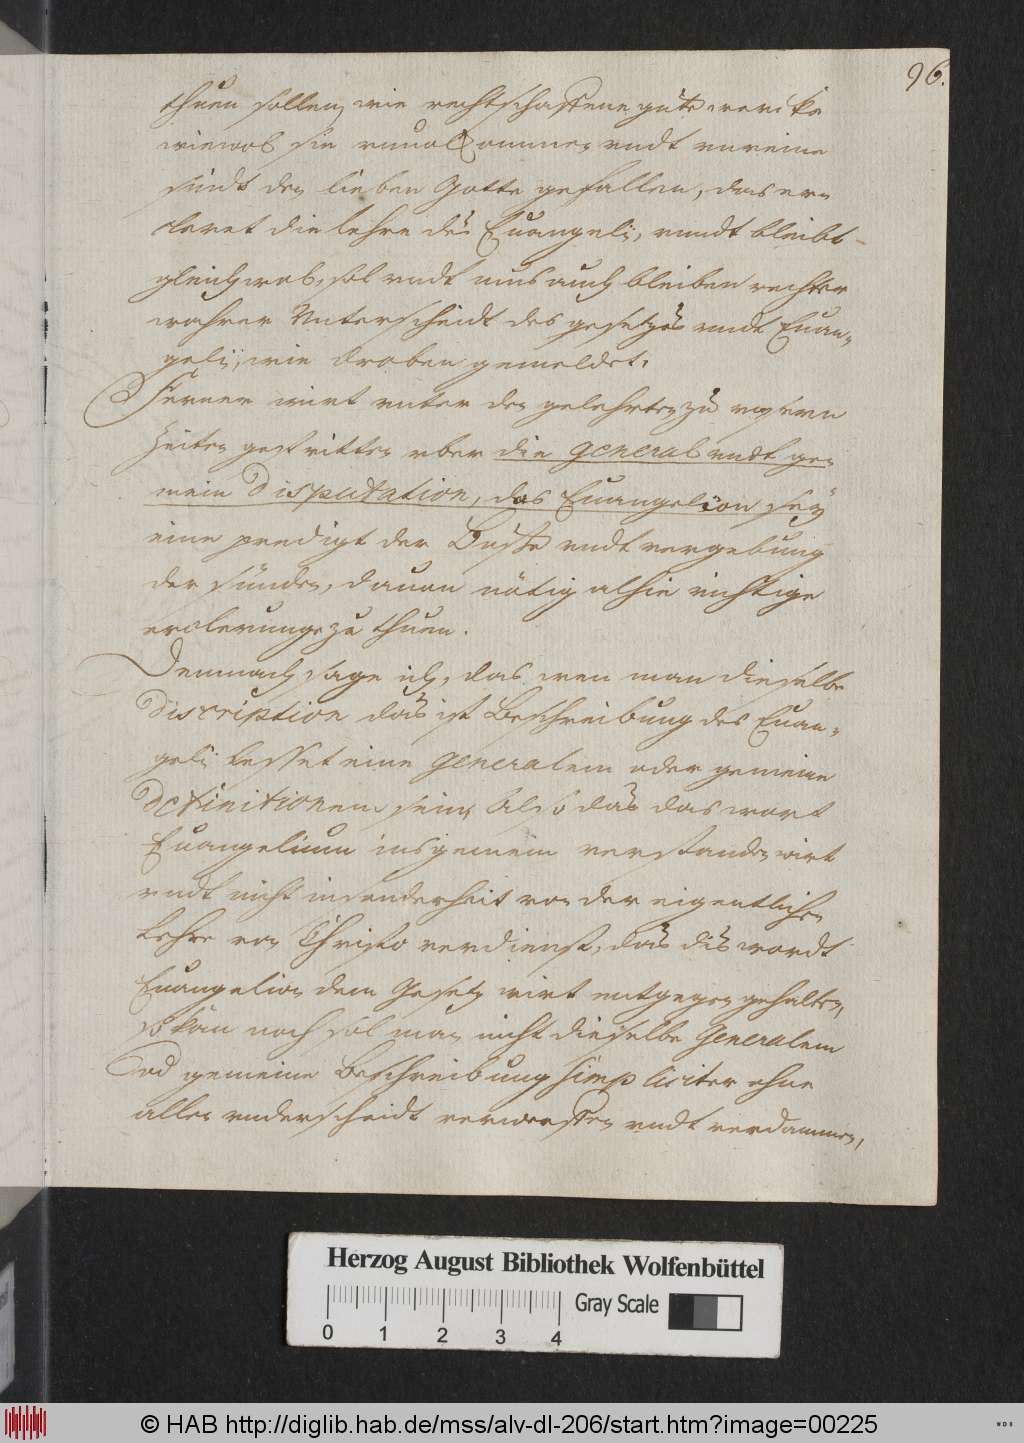 96.
thuen sollen, wie rechtschaffene gute wercke
wiewol sie unuolkommen undt unreine
sindt den lieben Gotte gefallen, das er¬
cleret die lehre des Euangelij, unndt bleibt
gleichwol, sol undt mus auch bleiben rechter
wahrer Unterscheidt des gesetzes undt Euan¬
gelij, wie droben gemeldet.
Ferner wirt unter den gelehrten zu unsern
Zeiten gestritten uber die general undt ge¬
mein Disputation, das Euangelion sey
eine predigt der Busse undt vergebung
der sünden, dauon nötig alhie richtige
erclerunge zu thuen.
Demnach sage ich, das wen man dieselbe
Discription das ist Beschreibung des Euan¬
gelij lesset eine Generalem oder gemeine
Definitionem sein, Also das das wort
Euangelium insgemein verstanden wirt
undt nicht insonderheit von der eigentlichen
Lehre von Christo verdienst, das dis wordt
Euangelion dem Gesetz wirt entgegen gehalten,
so kan noch sol man nicht dieselbe Generalem
od gemeine Beschreibung simpliciter ohne
allen underscheidt verwerffen undt verdammen,
Herzog August Bibliothek Wolfenbüttel
Gray Scale
0 1 2 3 4
© HAB http://diglib.hab.de/mss/alv-dl-206/start.htm?image=00225